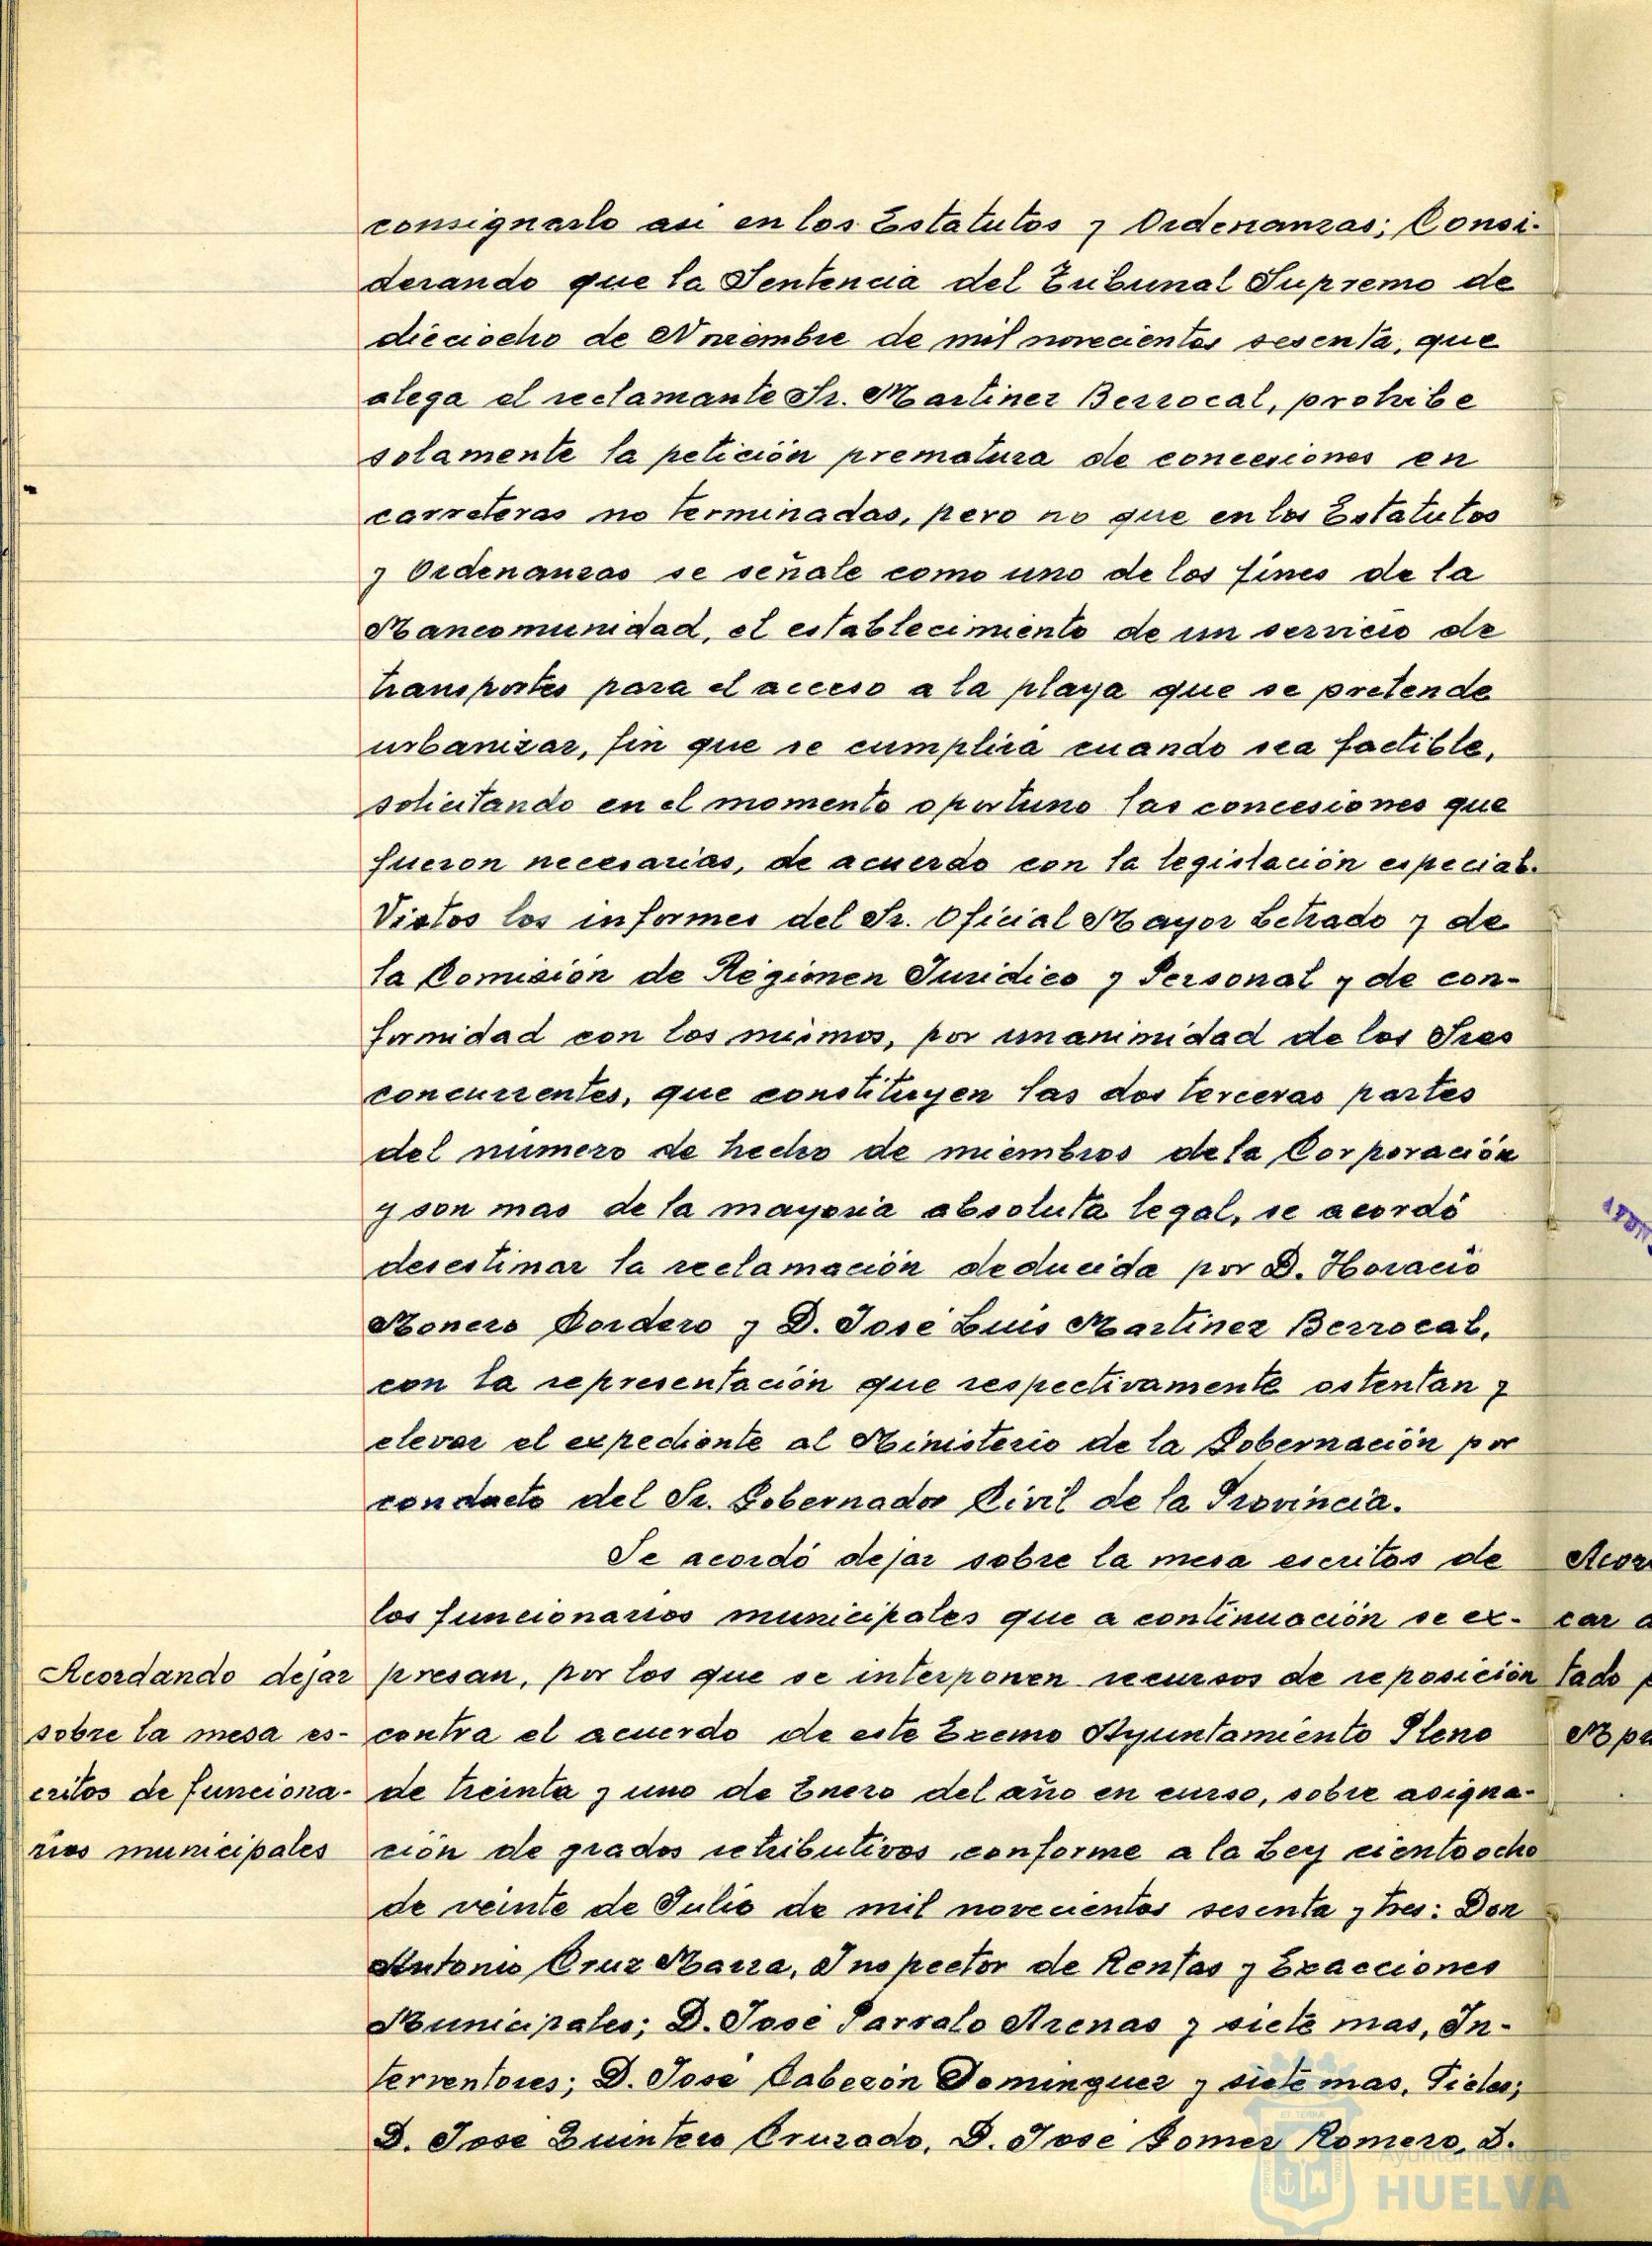 consignarlo asi en los Estatutos y Ordenanzas; Consi-
derando que la Sentencia del Tribunal Supremo de
dieciocho de Noviembre de mil novecientos sesenta, que
alega el reclamante Sr. Martinez Berrocal, prohibe
solamente la petición prematura de concesiones en
carreteras no terminadas, pero no que en los Estatutos
y Ordenanzas se señale como uno de los fines de la
Mancomunidad, el establecimiento de un servicio de
transportes para el acceso a la playa que se pretende
urbanizar, fin que se cumplirá cuando sea factible,
solicitando en el momento oportuno las concesiones que
fueron necesarias, de acuerdo con la legislación especial.
Vistos los informes del Sr. Oficial Mayor Letrado y de
la Comisión de Régimen Juridico y Personal y de con-
formidad con los mismos, por unanimidad de los Sres
concurrentes, que constituyen las dos terceras partes
del número de hecho de miembros de la Corporación
y son mas de la mayoria absoluta legal, se acordó
desestimar la reclamación deducida por D. Horacio
Monero Cordero y D. José Luis Martinez Berrocal,
con la representación que respectivamente ostentan y
elevar el expediente al Ministerio de la Gobernación por
conducto del Sr. Gobernador Civil de la Provincia.
Se acordó dejar sobre la mesa escritos de
los funcionarios municipales que a continuación se ex-
presan, por los que se interponen recursos de reposición
contra el acuerdo de este Excmo Ayuntamiento Pleno
de treinta y uno de Enero del año en curso, sobre asigna-
ción de grados retributivos conforme a la Ley ciento ocho
de veinte de Julio de mil novecientos sesenta y tres: Don
Antonio Cruz Marra, Inspector de Rentas y Exacciones
Municipales; D. José Parralo Arenas y siete mas, In-
terventores; D. José Cabezón Dominguez y siete mas, Fieles;
D. José Quintero Cruzado, D. José Gomez Romero, D.
Acordando dejar
sobre la mesa es-
critos de funciona-
rios municipales
Acor
car a
tado
Ayuntamiento de
HUELVA